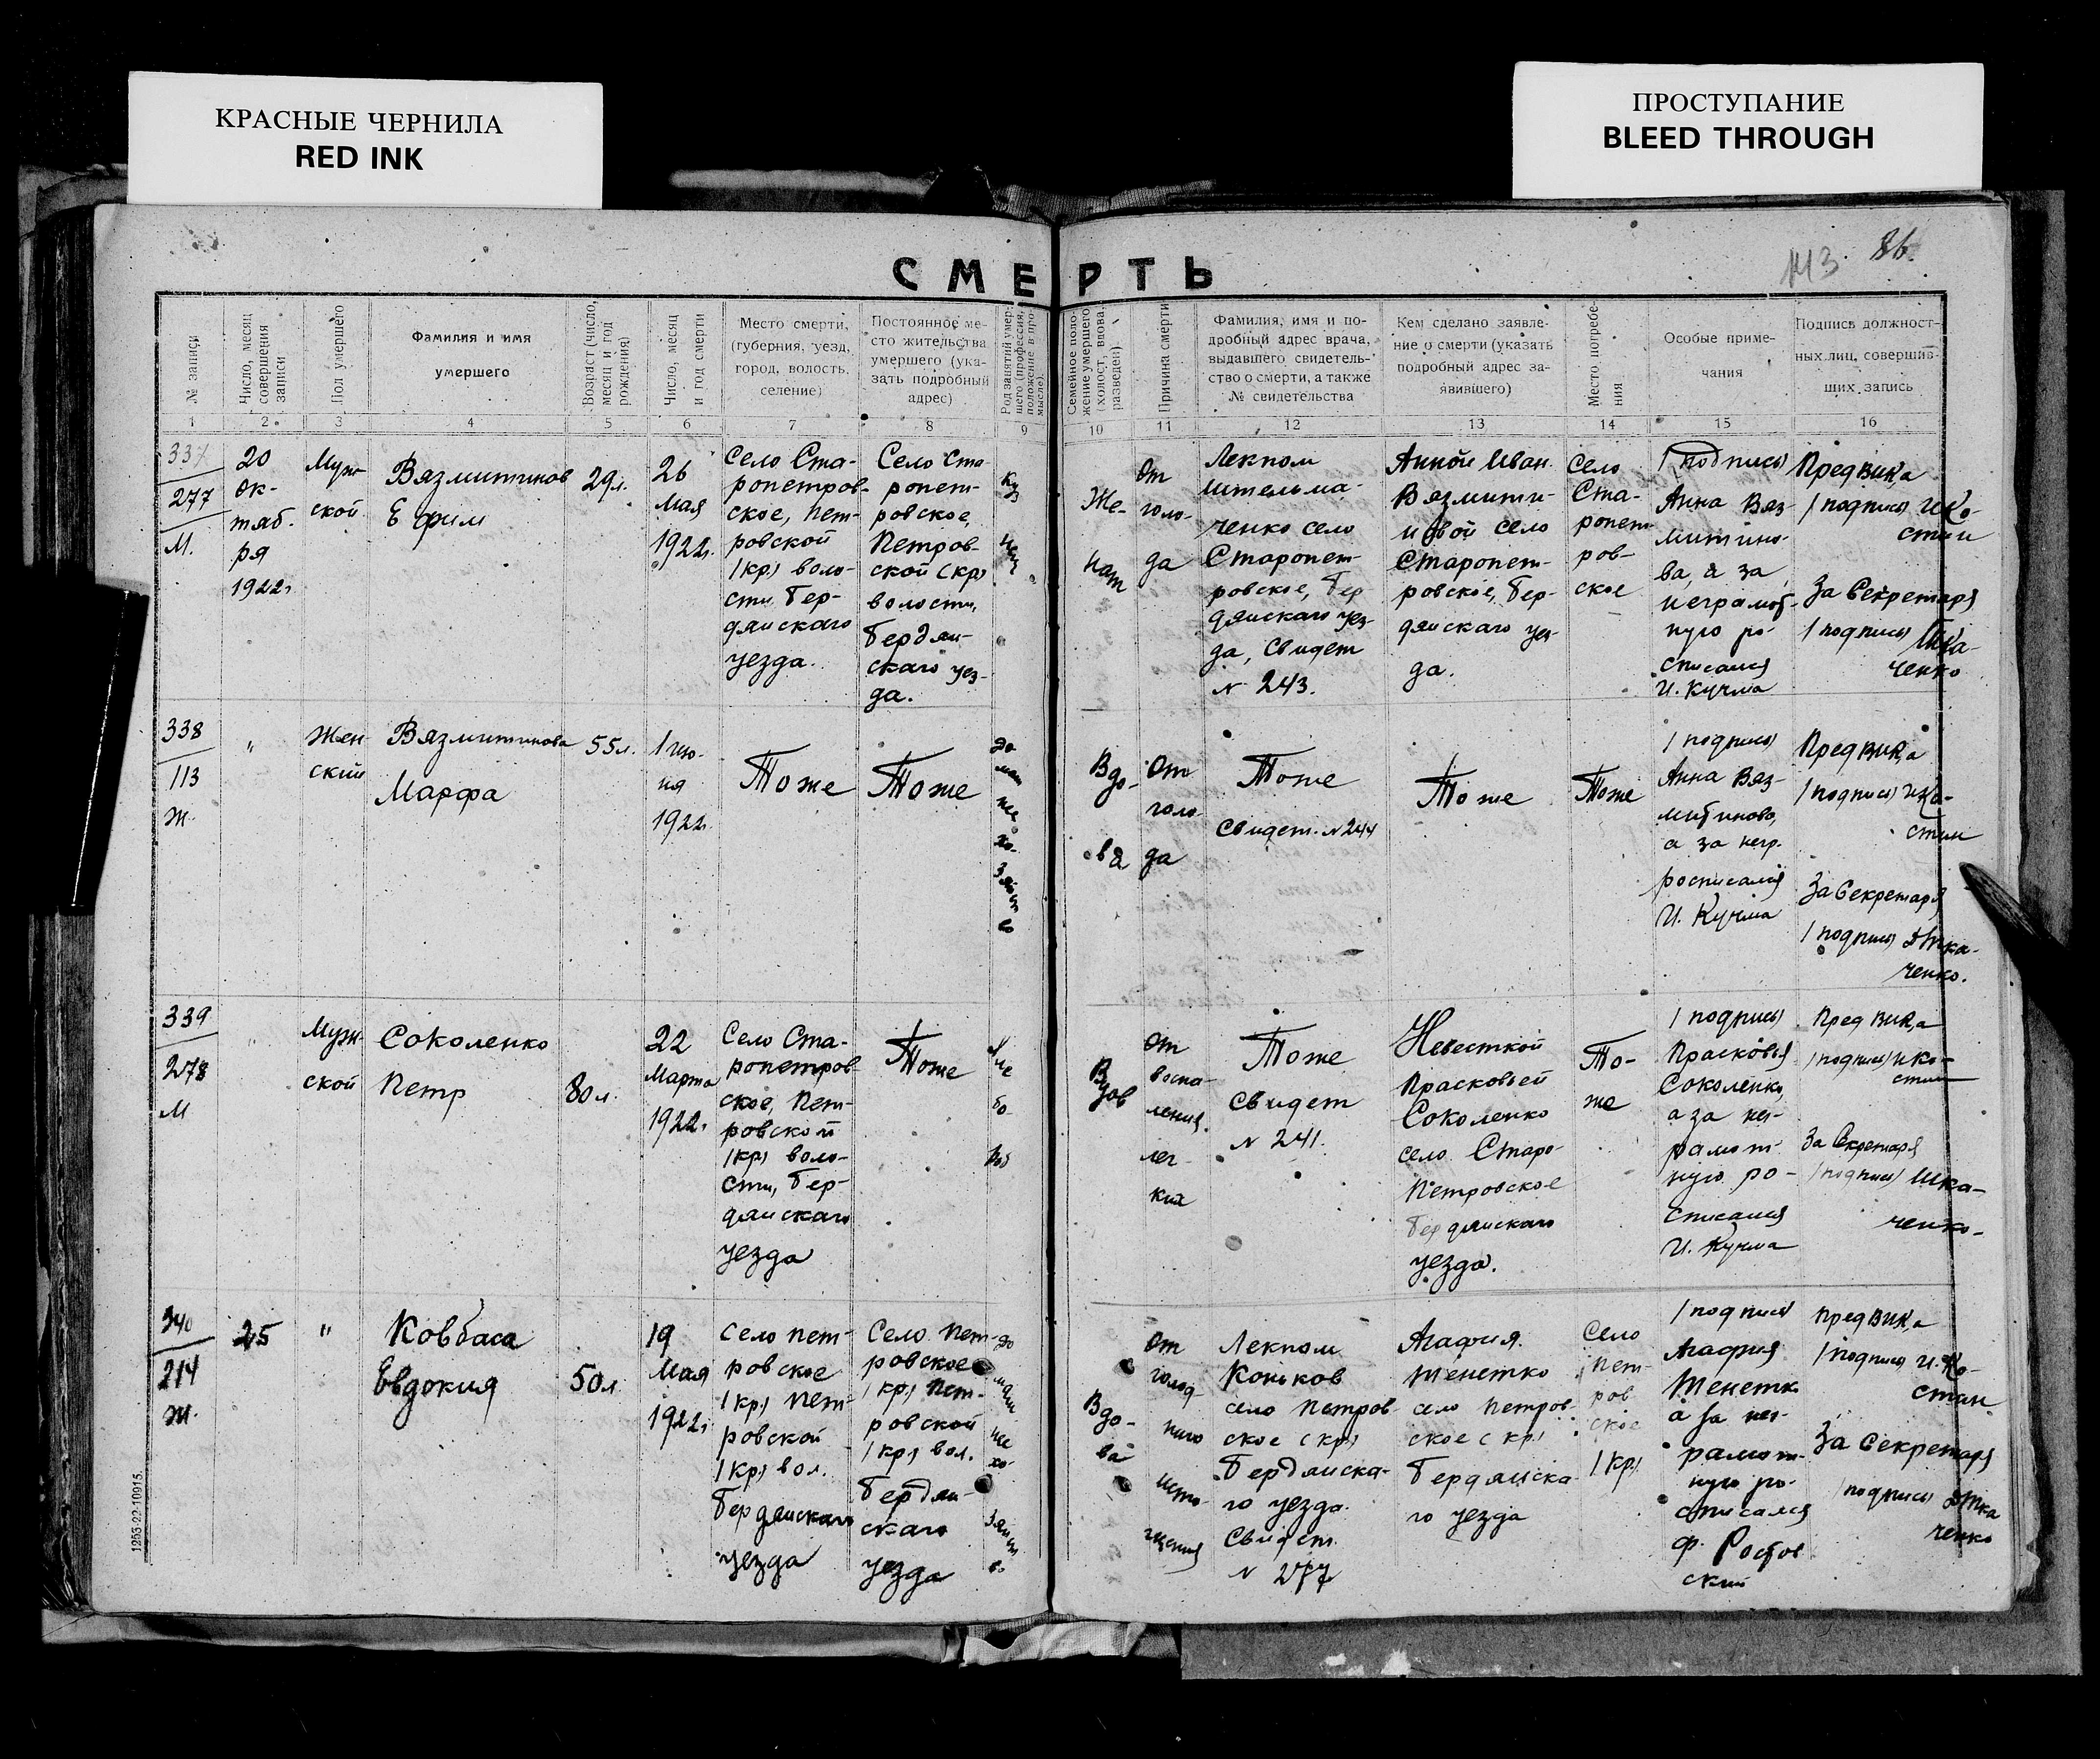 КРАСНЫЕ ЧЕРНИЛА
RED INK
ПРОСТУПАНИЕ
BLEED THROUGH
143
86.
СМЕРТЬ
№ записи
Число, месяц
совершения
записи
Пол умершего
Фамилия и имя
умершего
Возраст (число,
месяц и год
рождения)
Число, месяц
и год смерти
Место смерти,
(губерния, уезд,
город, волость,
селение)
Постоянное ме-
сто жительства
умершего (ука-
зать подробный
адрес)
Род занятий умер-
шего (профессия,
положение в про-
мысле).
Семейное поло-
жение умершего
(холост, вдова,
разведен)
Причина смерти
Фамилия, имя и по-
дробный адрес врача,
выдавшего свидетель-
ство о смерти, а также
№ свидетельства
Кем сделано заявле-
ние о смерти (указать
подробный адрес за-
явившего)
Место погребе-
ния
Особые приме-
чания
Подпись должност-
ных лиц, совершив-
ших запись
1 2 3 4 5 6 7 8 9 10 11 12 13 14 15 16
337
277
М.
20
ок-
тяб.
ря
1922г.
Муж
ской
Вязмитинов
Ефим
29л.
26
Мая
1922г.
Село Ста-
ропетров-
ское, Пет-
ровской
(кр.) воло-
сти, Бер-
дянскаго
уезда.
Село Ста
ропет-
ровское,
Петров-
ской (кр)
волости,
Бердян-
скаго уез-
да.
Куз
нец
Же-
нат
От
голо-
да
Лекпом
село
Старопет-
ровское, Бер
дянскаго уез-
да, Свидет
№ 243.
Анной Иван.
Вязмити-
новой село
Старопет-
ровское, Бер-
дянскаго уез-
да.
Село
Ста-
ропет-
ров-
ское
(подпись)
Анна Вяз-
митино-
ва, а за
неграмот-
ную ро-
списался
И. Кучма
ПредВИК,а
(подпись) И Ко-
стин
За Секретаря
(подпись) Тка-
ченко
338
113
Ж.
"
Жен
ский
Вязмитинова
Марфа
55л.
1 ию-
ня
1922г.
Тоже
Тоже
до
маш
нее
хо-
зяйст
во
Вдо-
ва
От
голо-
да
Тоже
Свидет. №244
Тоже
Тоже
(подпись)
Анна Вяз-
митинова,
а за негр.
росписался
И. Кучма
ПредВИК,а
(подпись) И Ко-
стин
За Секретаря
(подпись) Тка-
ченко.
339
278
М
"
Муж
ской
Соколенко
Петр
80л.
22
Марта
1922г.
Село Ста-
ропетров
ское, Пет-
ровской
(кр) воло-
сти, Бер-
дянскаго
уезда
Тоже
Вдов
От
воспа-
ления
лег-
ких
Тоже
Свидет
№ 241.
Невесткой
Прасковьей
Соколенко
село Старо-
Петровское
Бердянскаго
уезда.
То-
же
(подпись)
Прасковья
Соколенко,
а за нег-
рамот-
ную ро-
списался
И. Кучма
ПредВИК,а
(подпись) И Ко-
стин
За Секретаря
(подпись) Тка-
ченко-
340
214
Ж.
25
"
Ковбаса
Евдокия
50л
19
Мая
1922г
Село Пет-
ровское
(кр) Пет-
ровской
(кр) вол.
Бердянскаго
уезда
Село Пет-
ровское
(кр) Пет-
ровской
(кр) вол.
Бердян-
скаго
уезда
до
маш
нее
хо-
зяйст
во
Вдо-
ва
От
голод
наго
исто-
щения
Лекпом
Коньков
село Петров-
ское (кр)
Бердянска-
го уезда.
Свидет.
№ 277
Агафия
Тенетко
село Петров-
ское (кр)
Бердянска-
го уезда
Село
Пет-
ров
ское
(кр)
(подпись)
Агафия
Тенетк
а за нег-
рамот-
ную ро-
списался
Ф. Ростов
ский
ПредВИК,а
(подпись) И. Ко-
стин
За Секретаря
(подпись) Тка
ченко
1253-22-10915.